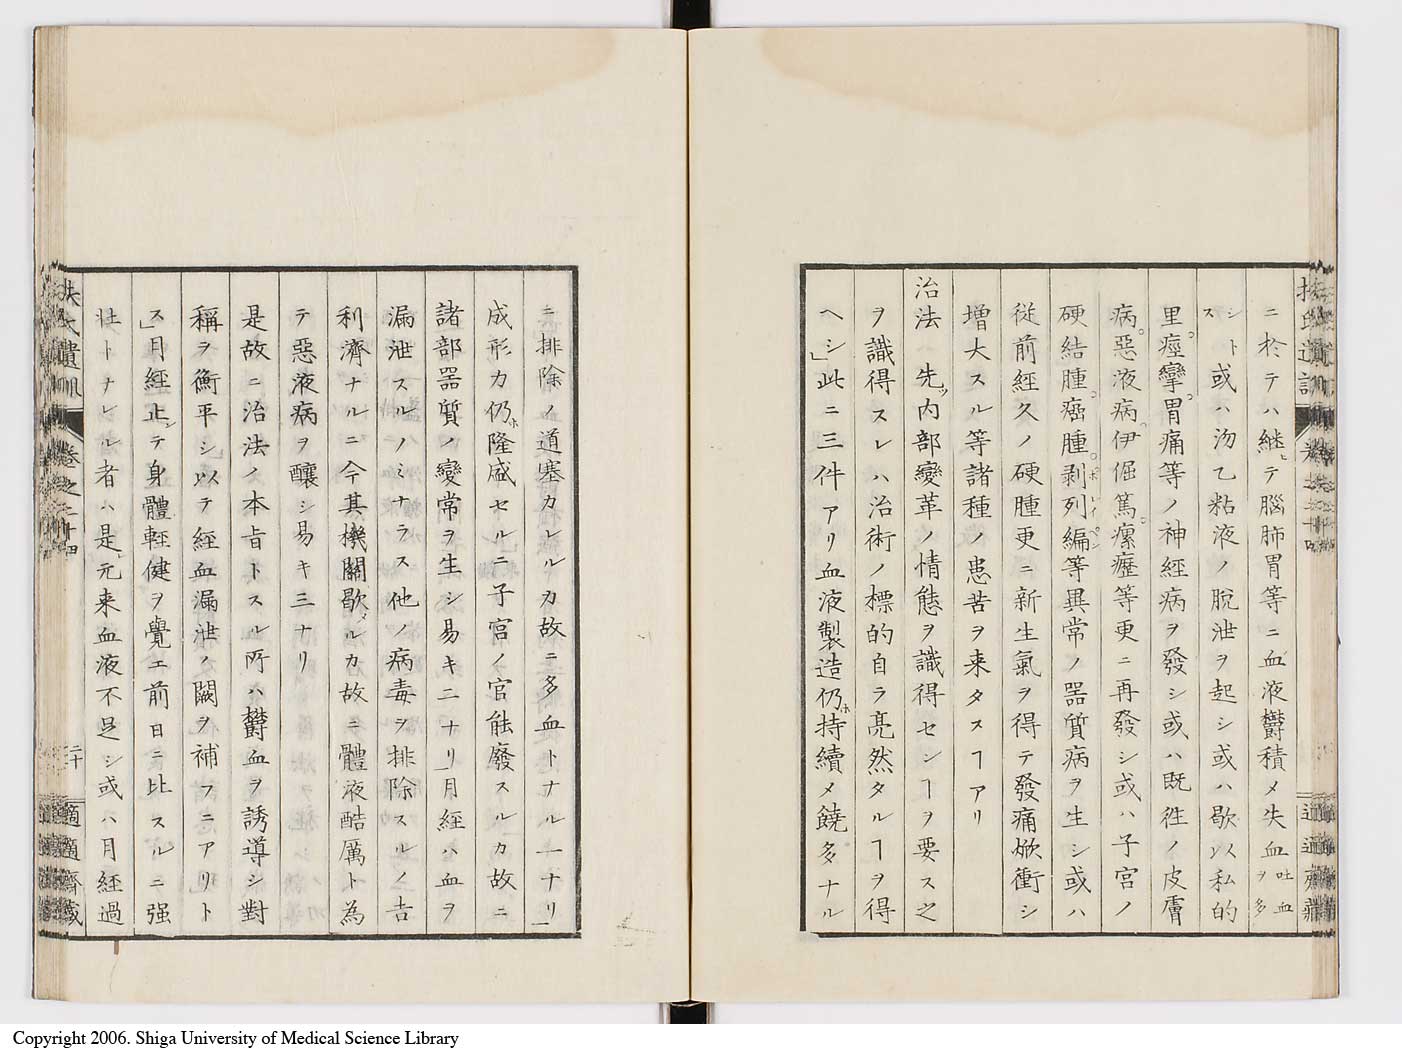 ニ於テハ継テ腦肺胃等ニ血液欝積メ失血吐血ヲ多
シト或ハ沕乙粘液ノ脱泄ヲ起シ或ハ歇以私的
ス
里。痙攣。胃痛等ノ神經病ヲ發シ或ハ既徃ノ皮膚
病。惡液病。伊倔篤。瘰癧等更ニ再發シ或ハ子宮ノ
硬結腫。癌腫。剥列編等異常ノ器質病ヲ生シ或ハ
ポレイペン
従前經久ノ硬腫更ニ新生氣ヲ得テ發痛焮衝シ
増大スル等諸種ノ患苦ヲ来タスヿアリ
治法ハ先ツ内部變革ノ情態ヲ識得センヿヲ要ス之
ヲ識得スレハ治術ノ標的自ラ亮然タルヿヲ得
ヘシ」此ニ三件アリ血液製造仍ホ持續メ饒多ナル
ニ排除ノ道塞カレルカ故ニ多血トナル一ナリ」
成形力仍ホ隆盛セルニ子宮ノ官能廢スルカ故ニ
諸部器質ノ變常ヲ生シ易キ二ナリ」月經ハ血ヲ
漏泄スルノミナラス他ノ病毒ヲ排除スルノ𠮷
利濟ナルニ今其機關歇メルカ故ニ體液酷厲ト為
テ惡液病ヲ釀シ易キ三ナリ
是故ニ治法ノ本旨トスル所ハ欝血ヲ誘導シ對
稱ヲ衡平シ以テ經血漏泄ノ闕ヲ補フニアリト
ス」月經止シテ身體軽健ヲ覺エ前日ニ比スルニ強
壮トナレル者ハ是レ元来血液不足シ或ハ月經過
扶氏遺訓
巻之二十四
二十
適適齋蔵